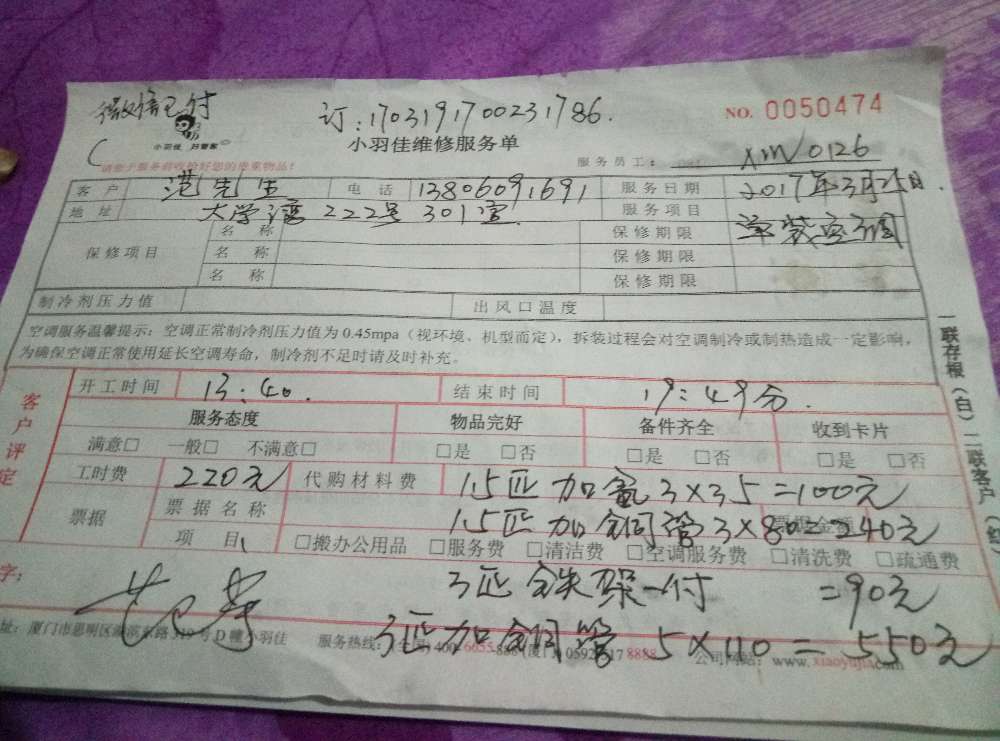 微信已付
订:1703191700231786.
NO. 0050474
小羽佳 好管家
小羽佳维修服务单
服务员工: XMW0126
客户 先生 电话 13806091691 服务日期 2017年3月25日.
地址 大学湾222号301室 服务项目 单装空调
保修项目 名称 保修期限
名称 保修期限
名称 保修期限
制冷剂压力值 出风口温度
空调服务温馨提示:空调正常制冷剂压力值为0.45mpa(视环境、机型而定),拆装过程会对空调制冷或制热造成一定影响,
为确保空调正常使用延长空调寿命,制冷剂不足时请及时补充。
客户评定
开工时间 13:40. 结束时间 19:49分.
服务态度 物品完好 备件齐全 收到卡片
满意□ 一般□ 不满意□ □是 □否 □是 □否 □是 □否
工时费 220元 代购材料费 1.5匹加氟3×35=100元
票据 票据名称 1.5匹加铜管3×80=240元
项目 □搬办公用品 □服务费 □清洁费 □空调服务费 □清洗费 □疏通费
3匹铁架一付 =90元
字:
3匹加铜管 5×110=550元
址:厦门市思明区湖滨东路319号D幢小羽佳 服务热线:(全国)400 6655 8888 公司网站:www.xiaoyujia.com
一联存根(白)二联客户(红)